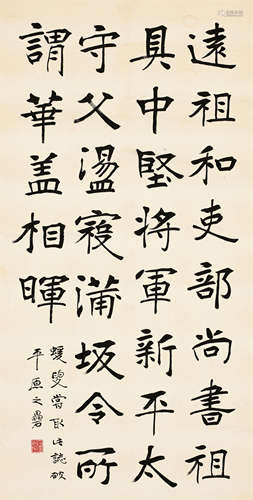 遠祖和吏部尚書祖
具中堅將軍新平太
守父盪寇蒲坂令所
謂華盖相暉
蝯叟嘗取此誌破
平原之